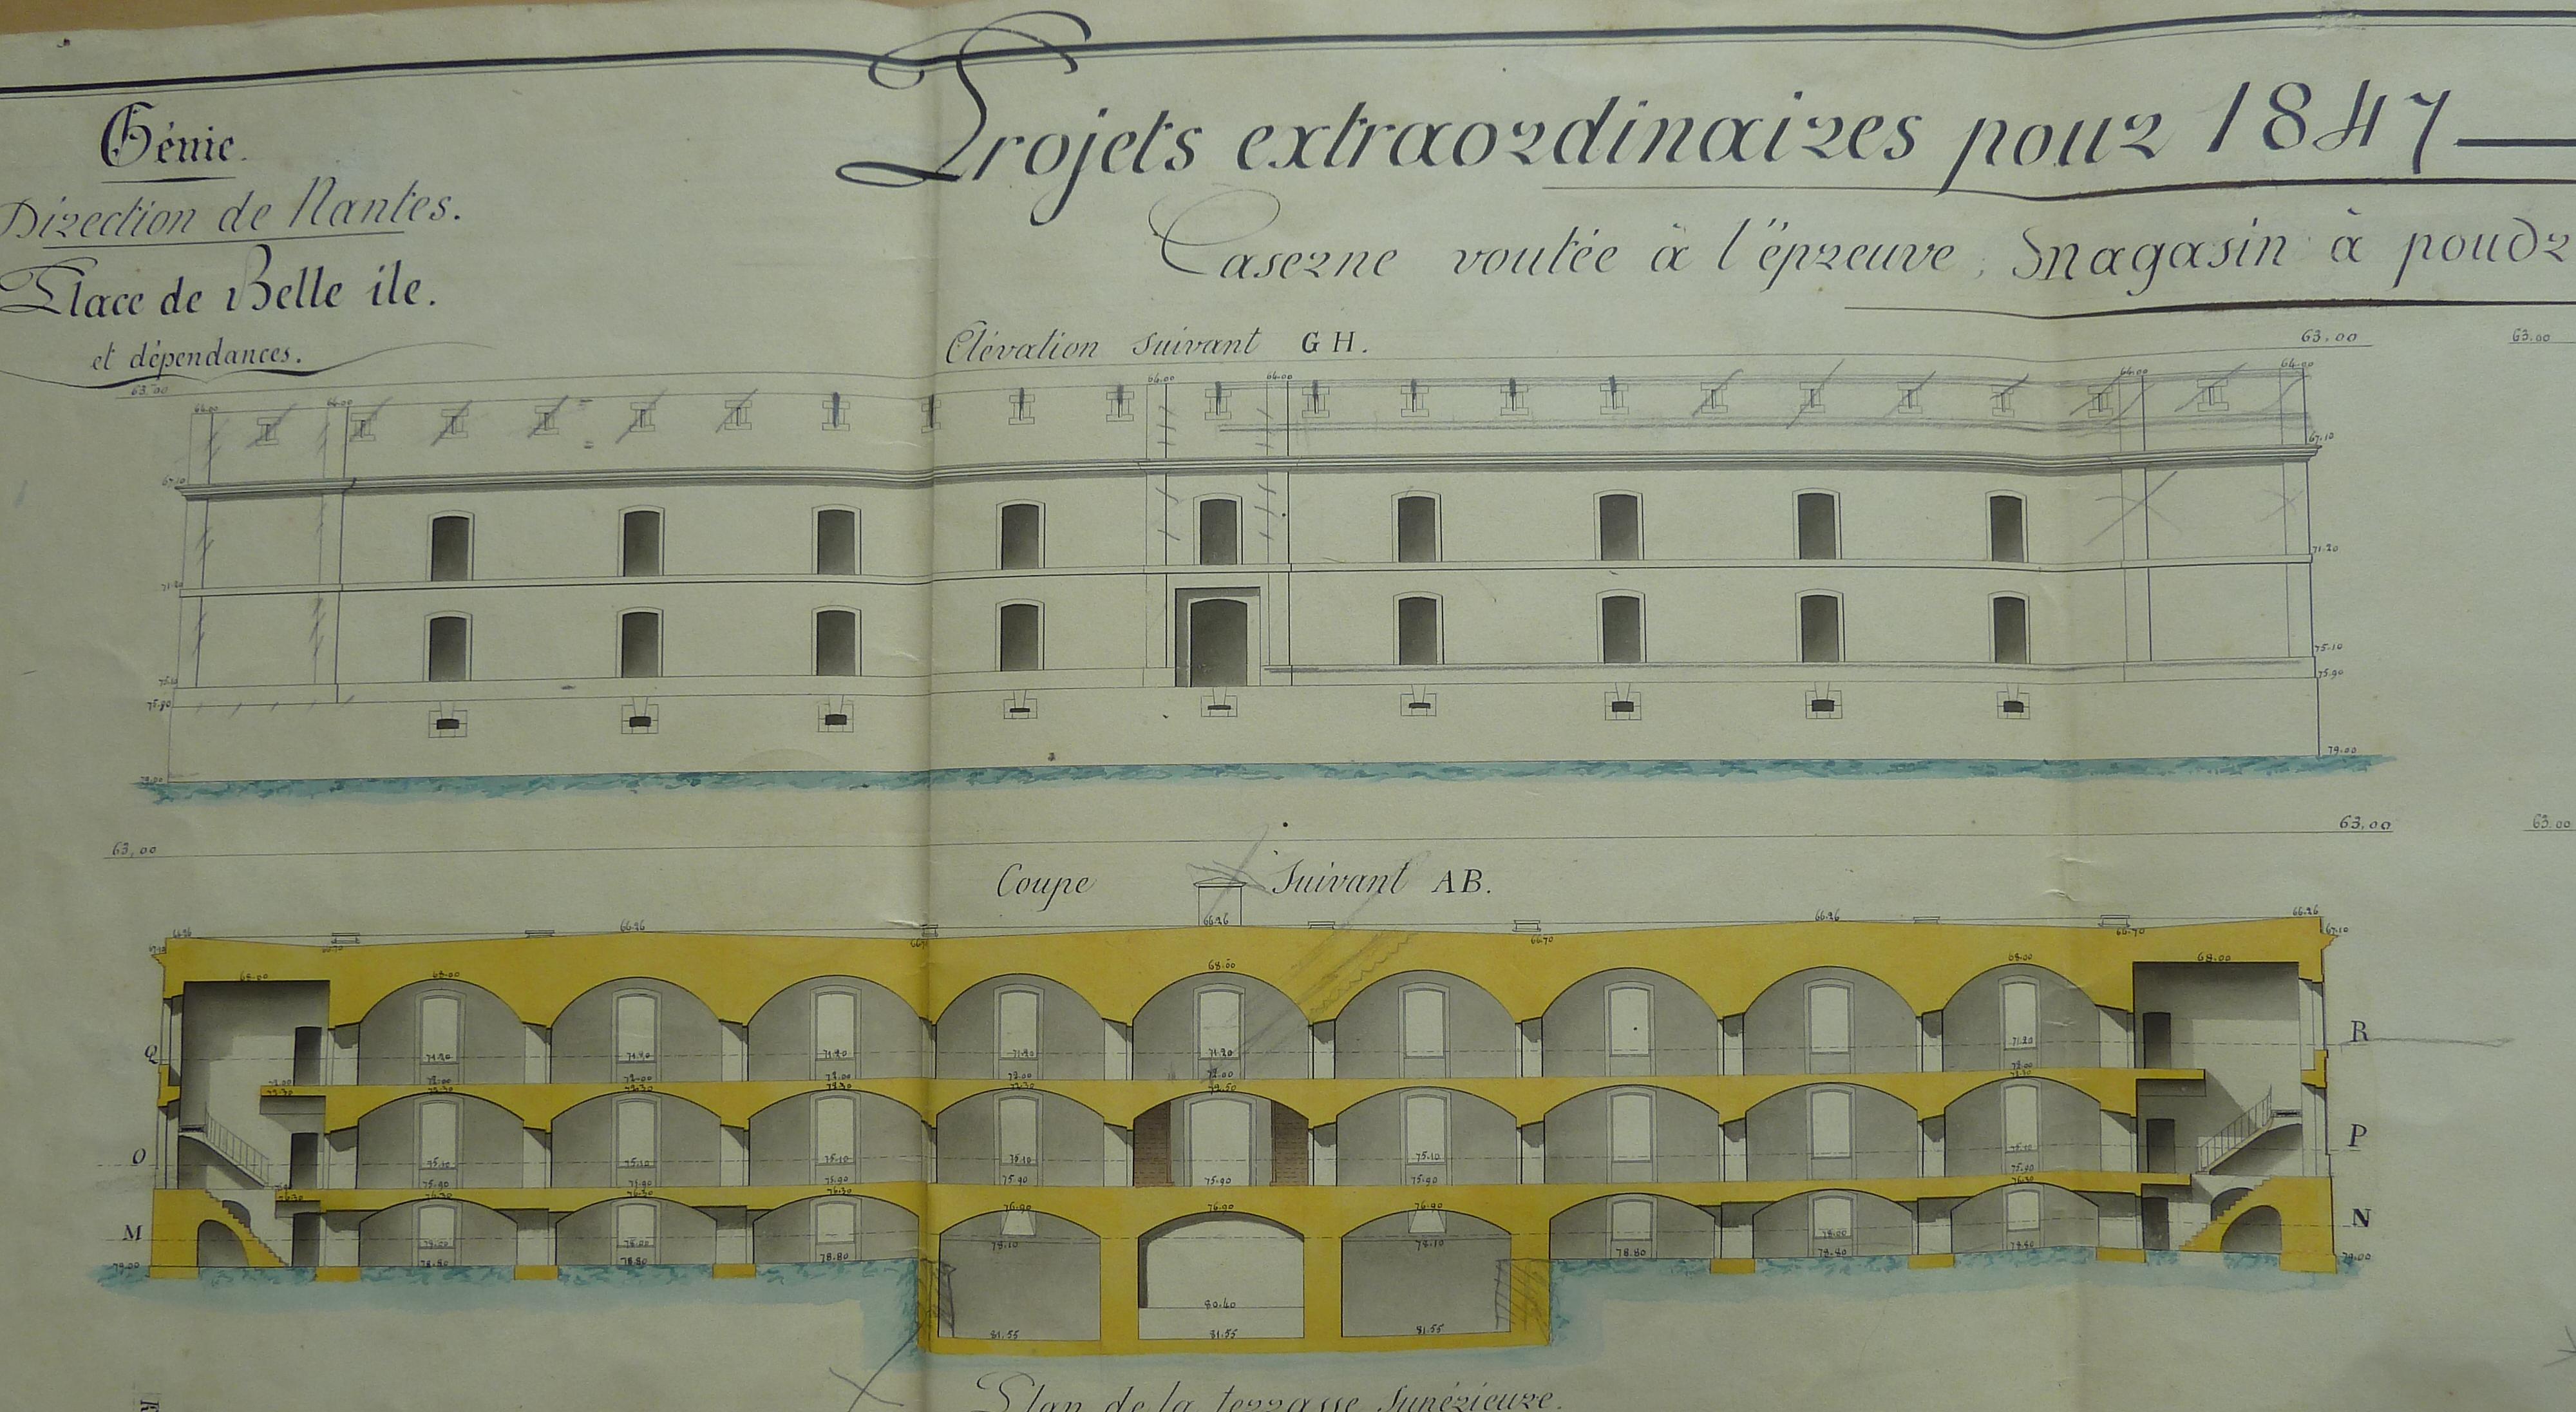 Génie.
Direction de Nantes.
Place de Belle ile.
et dépendances.
Projets extraordinaires pour 1847
Caserne voutée à l'épreuve, Magasin à poudr
Elévation suivant G H.
63,00
63.00
63.00
66.00 66.00 66.00 66.00 66.00 66.00
67.10 67.10
71.20 71.20
75.10 75.10
75.90 75.90
79.00 79.00
63,00
63,00
63.00
Coupe Suivant AB.
66.26 66.26 66.26 66.26 66.26
67.10 66.70 66.70 66.70 67.10
68.00 68.00 68.00 68.00 68.00
Q R
71.20 71.20 71.20 71.20 71.20 71.20
72.00 72.00 72.00 72.00 72.00 72.00 72.00
72.30 72.30 72.30 72.30 72.30 72.50 72.30
O P
75.10 75.10 75.10 75.10 75.10 75.10
75.90 75.90 75.90 75.90 75.90 75.90 75.90
76.30 76.30 76.30 76.30 76.90 76.90 76.90 76.30
M N
78.00 78.00 78.10 78.10 78.00
79.00 78.80 78.80 78.80 78.80 78.80 78.80 79.00
80.40
81.55 81.55 81.55
Plan de la terrasse Supérieure.